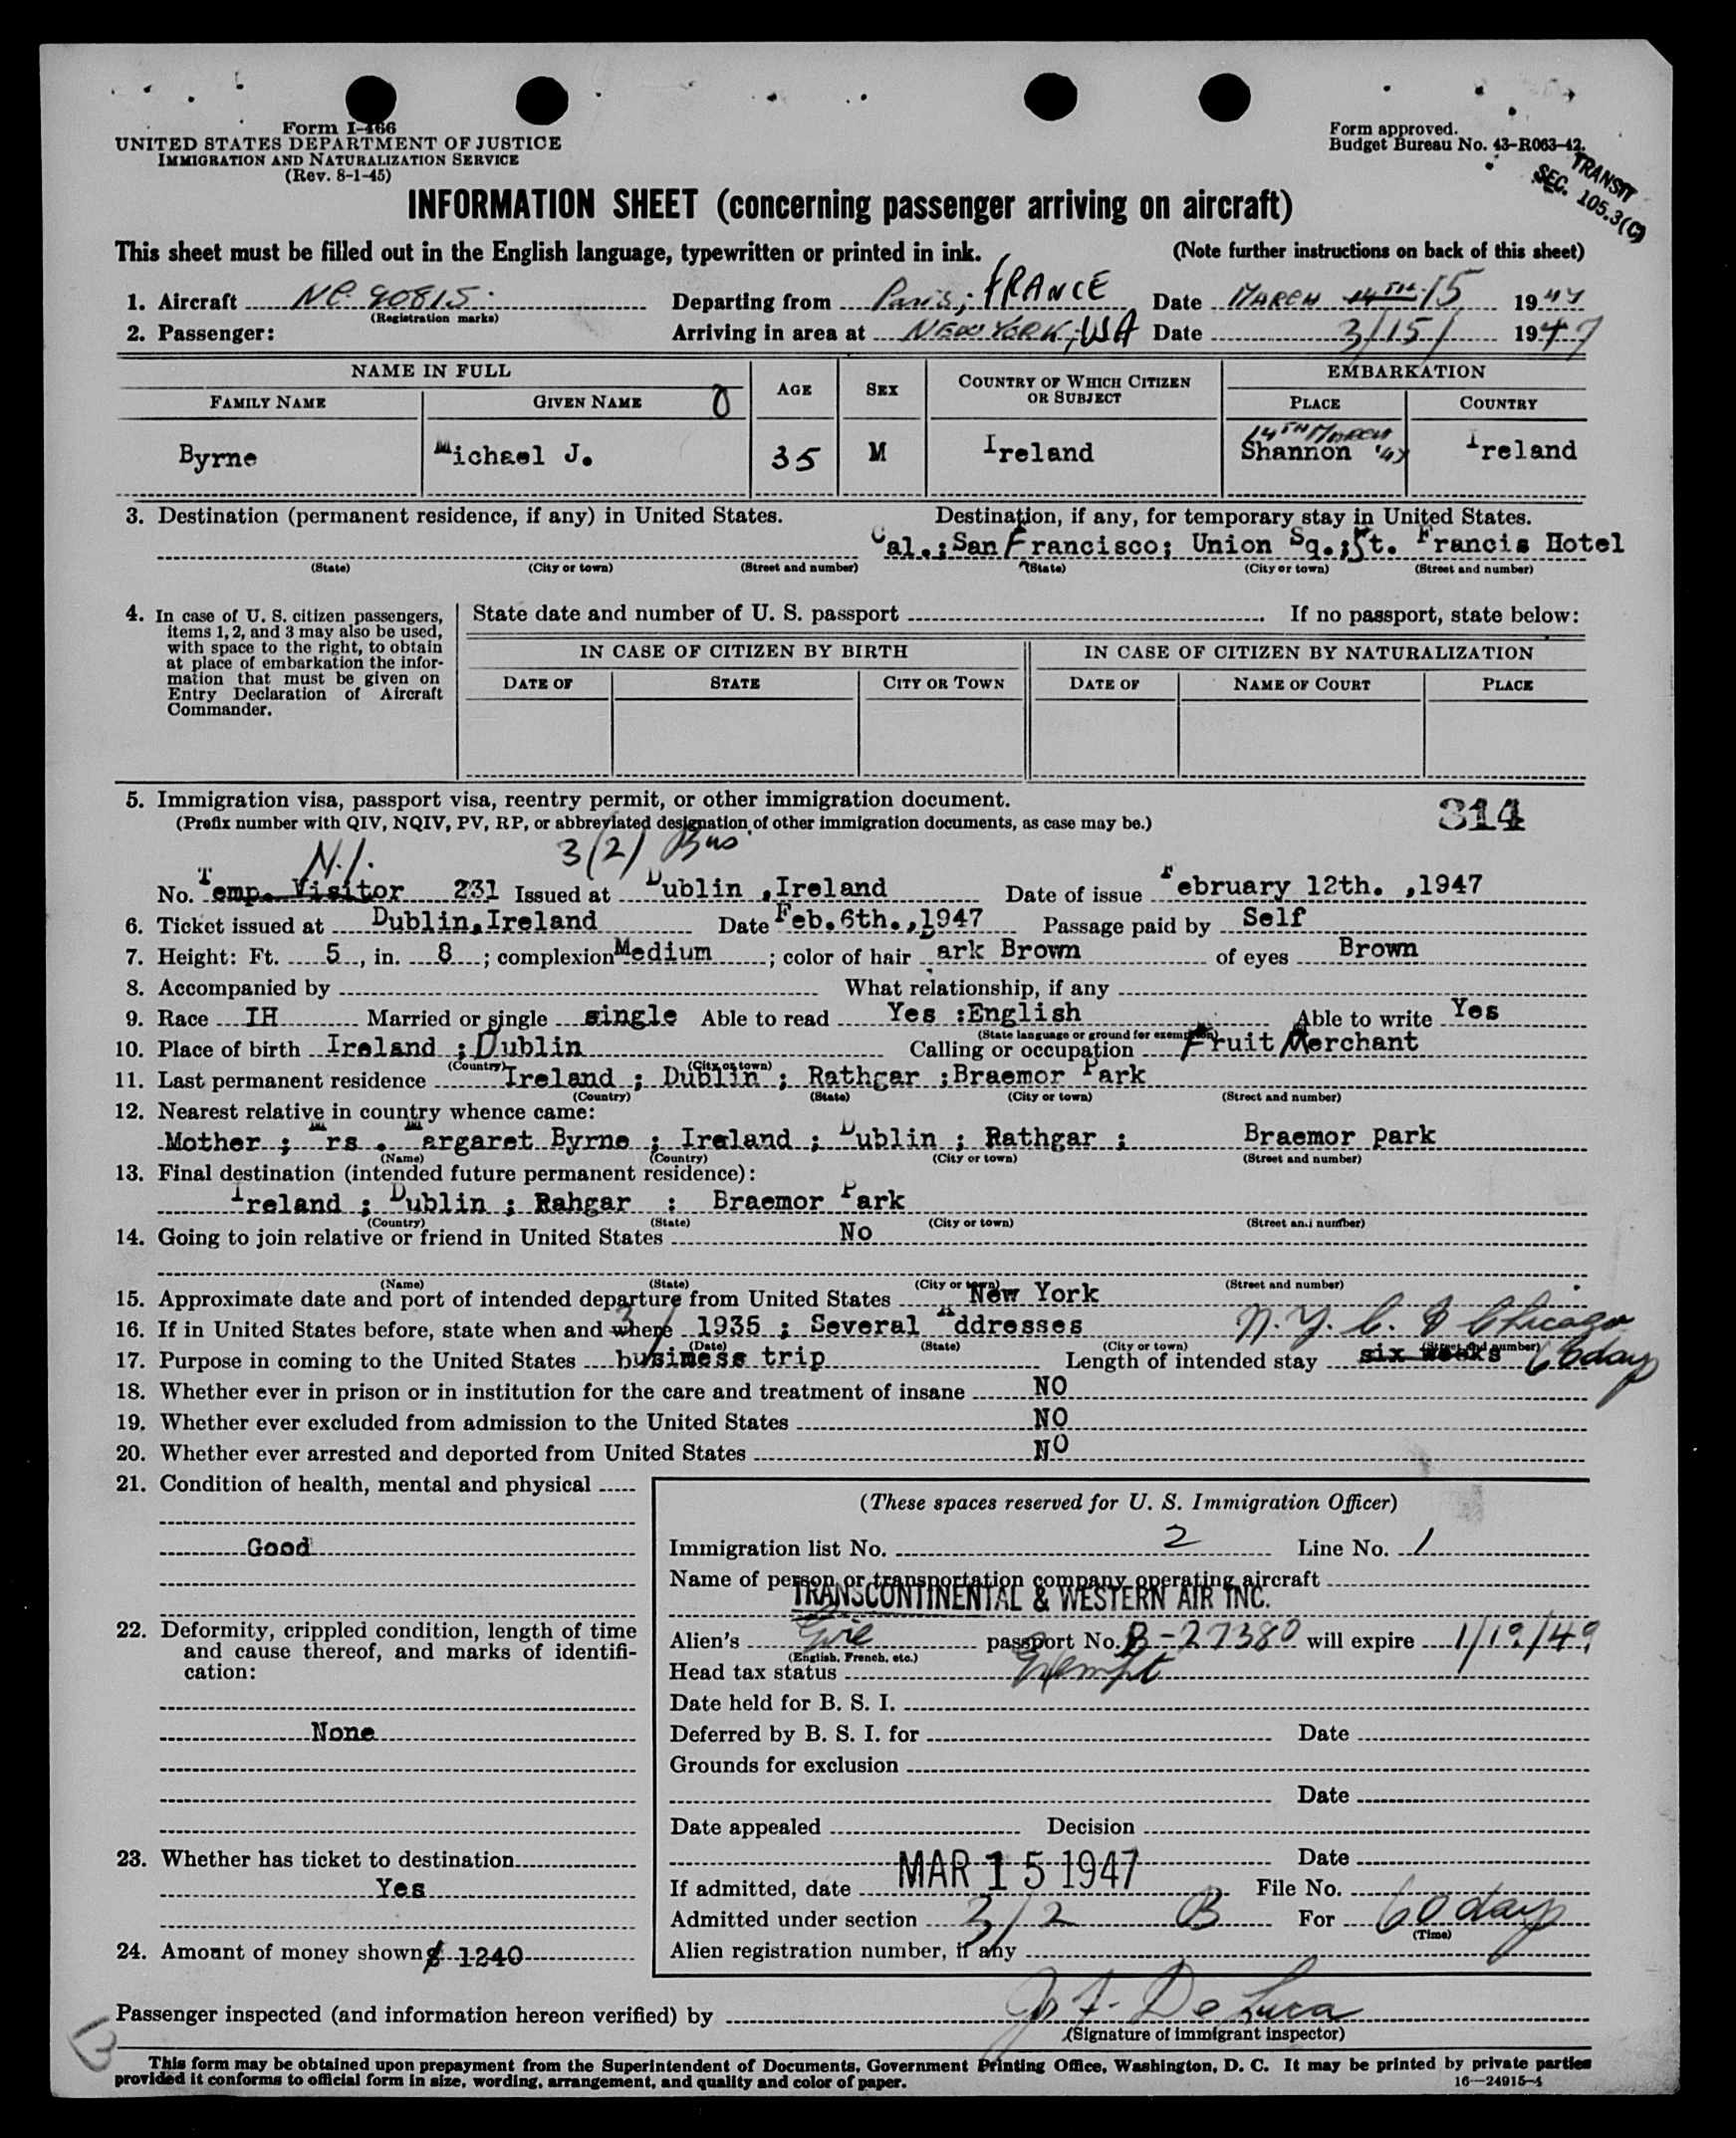 Form I-466
UNITED STATES DEPARTMENT OF JUSTICE
IMMIGRATION AND NATURALIZATION SERVICE
(Rev. 8-1-45)
Form approved.
Budget Bureau No. 43-R063-42.
TRANSIT
SEC. 105.3(C)
INFORMATION SHEET (concerning passenger arriving on aircraft)
This sheet must be filled out in the English language, typewritten or printed in ink. (Note further instructions on back of this sheet)
1. Aircraft NC 90815 Departing from Paris, FRANCE Date MARCH 14TH 15 1947
(Registration marks)
2. Passenger: Arriving in area at NEW YORK, USA Date 3/15/ 1947
NAME IN FULL AGE SEX COUNTRY OF WHICH CITIZEN OR SUBJECT EMBARKATION
FAMILY NAME GIVEN NAME PLACE COUNTRY
14TH MARCH
Byrne Michael J. 35 M Ireland Shannon '47 Ireland
3. Destination (permanent residence, if any) in United States. Destination, if any, for temporary stay in United States.
Cal.;San Francisco; Union Sq.;St. Francis Hotel
(State) (City or town) (Street and number) (State) (City or town) (Street and number)
4. In case of U. S. citizen passengers, items 1, 2, and 3 may also be used, with space to the right, to obtain at place of embarkation the information that must be given on Entry Declaration of Aircraft Commander.
State date and number of U. S. passport . If no passport, state below:
IN CASE OF CITIZEN BY BIRTH IN CASE OF CITIZEN BY NATURALIZATION
DATE OF STATE CITY OR TOWN DATE OF NAME OF COURT PLACE
5. Immigration visa, passport visa, reentry permit, or other immigration document.
(Prefix number with QIV, NQIV, PV, RP, or abbreviated designation of other immigration documents, as case may be.)
314
N.I. 3(2) Bus
No. Temp. Visitor 231 Issued at Dublin ,Ireland Date of issue February 12th. ,1947
6. Ticket issued at Dublin,Ireland Date Feb.6th.,1947 Passage paid by Self
7. Height: Ft. 5, in. 8; complexion Medium; color of hair Dark Brown of eyes Brown
8. Accompanied by What relationship, if any
9. Race IH Married or single single Able to read Yes :English Able to write Yes
(State language or ground for exemption)
10. Place of birth Ireland ; Dublin Calling or occupation Fruit Merchant
(Country) (City or town)
11. Last permanent residence Ireland ; Dublin ; Rathgar ;Braemor Park
(Country) (State) (City or town) (Street and number)
12. Nearest relative in country whence came:
Mother ; Mrs . Margaret Byrne ; Ireland ; Dublin ; Rathgar ; Braemor park
(Name) (Country) (City or town) (Street and number)
13. Final destination (intended future permanent residence):
Ireland ; Dublin ; Rahgar : Braemor Park
(Country) (State) (City or town) (Street and number)
14. Going to join relative or friend in United States No
(Name) (State) (City or town) (Street and number)
15. Approximate date and port of intended departure from United States New York
16. If in United States before, state when and where 1935 ; Several Addresses N.Y.C. & Chicago
(Date) (State) (City or town) (Street and number)
17. Purpose in coming to the United States business trip Length of intended stay six weeks 60 day
18. Whether ever in prison or in institution for the care and treatment of insane NO
19. Whether ever excluded from admission to the United States NO
20. Whether ever arrested and deported from United States NO
21. Condition of health, mental and physical
Good
22. Deformity, crippled condition, length of time and cause thereof, and marks of identification:
None
23. Whether has ticket to destination
Yes
24. Amount of money shown $ 1240
(These spaces reserved for U. S. Immigration Officer)
Immigration list No. 2 Line No. 1
Name of person or transportation company operating aircraft
TRANSCONTINENTAL & WESTERN AIR INC.
Alien's Eire passport No. B-27380 will expire 1/19/49
(English, French, etc.)
Head tax status Exempt
Date held for B. S. I.
Deferred by B. S. I. for Date
Grounds for exclusion
Date
Date appealed Decision
Date
If admitted, date MAR 15 1947 File No.
Admitted under section 3/2 B For 60 day
(Time)
Alien registration number, if any
Passenger inspected (and information hereon verified) by De Luca
(Signature of immigrant inspector)
This form may be obtained upon prepayment from the Superintendent of Documents, Government Printing Office, Washington, D. C. It may be printed by private parties
provided it conforms to official form in size, wording, arrangement, and quality and color of paper.
16—24915-4